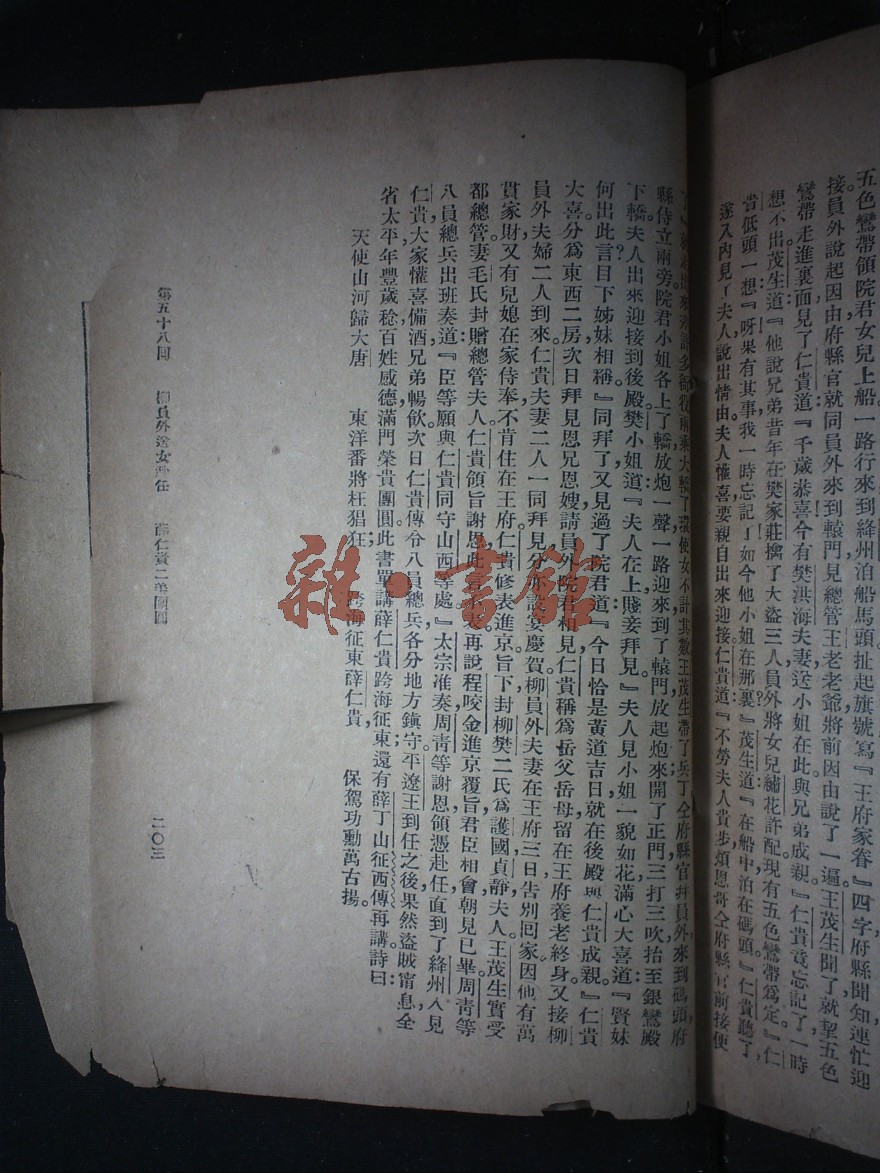 五色鸞帶領院君女兒上船一路行來到絳州泊船馬頭扯起旗號寫『王府家眷』四字府縣聞知連忙迎
接員外說起因由府縣官就同員外來到轅門見總管王老老爺將前因由說了一遍王茂生聞了就挈五色
鸞帶走進裏面見了仁貴道『千歲恭喜今有樊洪海夫妻送小姐在此與兄弟成親』仁貴竟忘記了一時
想不出茂生道『他說兄弟昔年在樊家莊擒了大盜三人員外將女兒繡花許配現有五色鸞帶爲定』仁
貴低頭一想『呀果有其事我一時忘記了如今他小姐在那裏』茂生道『在船中泊在碼頭』仁貴聽了
遂入內見了夫人說出情由夫人懽喜要親自出來迎接仁貴道『不勞夫人貴步煩恩哥仝府縣官前接便
了』出來許多衙役兩乘大轎了環使女不計其數王茂生帶了兵丁仝府縣官拜員外來到碼頭府
縣侍立兩旁院君小姐各上了轎放炮一聲一路迎來到了轅門放起炮來開了正門三打三吹抬至銀鸞殿
下轎夫人出來迎接到後殿樊小姐道『夫人在上賤妾拜見』夫人見小姐一貌如花滿心大喜道『賢妹
何出此言目下姊妹相稱』同拜了又見過了院君道『今日恰是黃道吉日就在後殿與仁貴成親』仁貴
大喜分爲東西二房次日拜見恩兄恩嫂請員外院君相見仁貴稱爲岳父岳母留在王府養老終身又接柳
員外夫婦二人到來仁貴夫妻二人一同拜見分宴慶賀柳員外夫妻在王府三日告別回家因他有萬
貫家財又有兒媳在家侍奉不肯住在王府仁貴修表進京旨下封柳樊二氏爲護國貞靜夫人王茂生實受
都總管妻毛氏封贈總管夫人仁貴領旨謝恩此表再說程咬金進京覆旨君臣相會朝見已畢周青等
八員總兵出班奏道『臣等願與仁貴同守山西等處』太宗准奏周青等謝恩領憑赴任直到了絳州入見
仁貴大家懽喜備酒兄弟暢飲次日仁貴傳令八員總兵各分地方鎭守平遼王到任之後果然盜賊甯息全
省太平年豐歲稔百姓感德滿門榮貴團圓此書單講薛仁貴跨海征東還有薛丁山征西傳再講詩曰
天使山河歸大唐　東洋番將枉猖狂　跨海征東薛仁貴　保駕功勳萬古揚
第五十八回　柳員外送女赴任　薛仁貴二美團圓
二〇三
雜·書館